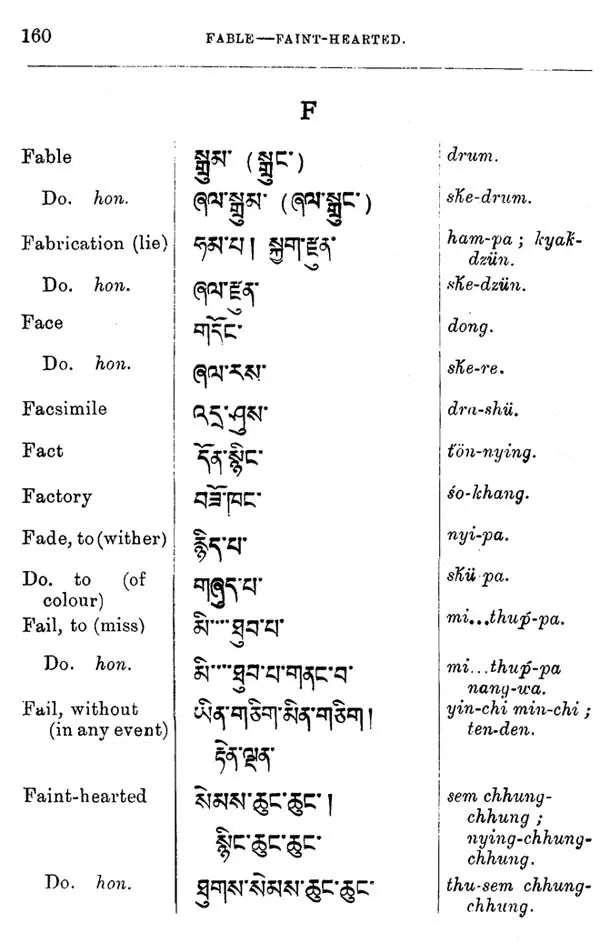 160 FABLE—FAINT-HEARTED.
F
Fable སྒྲུམ་ (སྒྲུང་) drum.
Do. hon. ཞལ་སྒྲུམ་ (ཞལ་སྒྲུང་) sḰe-drum.
Fabrication (lie) ཧམ་པ། སྐྱག་རྫུན་ ham-pa ; kyak-
dzün.
Do. hon. ཞལ་རྫུན་ sḰe-dzün.
Face གདོང་ dong.
Do. hon. ཞལ་རས་ sḰe-re.
Facsimile འདྲ་ཤུས་ dra-shü.
Fact དོན་སྙིང་ tön-nying.
Factory བཟོ་ཁང་ śo-khang.
Fade, to (wither) རྙིད་པ་ nyi-pa.
Do. to (of གཞུད་པ་ sḰü pa.
colour)
Fail, to (miss) མི་····ཐུབ་པ་ mi...thuṕ-pa.
Do. hon. མི་····ཐུབ་པ་གནང་བ་ mi...thuṕ-pa
nang-wa.
Fail, without ཡིན་གཅིག་མིན་གཅིག། yin-chi min-chi ;
(in any event) རྟེན་ལྡན་ ten-den.
Faint-hearted སེམས་ཆུང་ཆུང་། sem chhung-
chhung ;
སྙིང་ཆུང་ཆུང་ nying-chhung-
chhung.
Do. hon. ཐུགས་སེམས་ཆུང་ཆུང་ thu-sem chhung-
chhung.